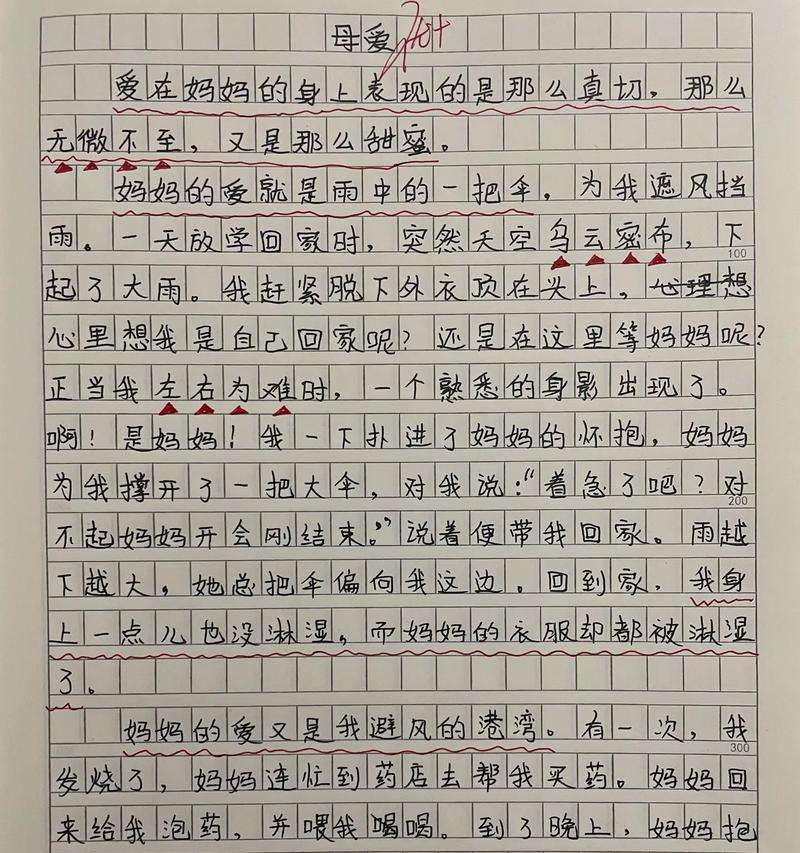 母爱
爱在妈妈的身上表现的是那么真切，那么
无微不至，又是那么甜蜜。
妈妈的爱就是雨中的一把伞，为我遮风挡
雨。一天放学回家时，突然天空乌云密布，下
100
起了大雨。我赶紧脱下外衣顶在头上，心理想
心里想我是自己回家呢？还是在这里等妈妈呢？
正当我左右为难时，一个熟悉的身影出现了。
啊！是妈妈！我一下扑进了妈妈的怀抱，妈妈
为我撑开了一把大伞，对我说：“着急了吧？对
200
不起妈妈开会刚结束。”说着便带我回家。雨越
下越大，她总把伞偏向我这边。回到家，我身
上一点儿也没淋湿，而妈妈的衣服却都被淋湿
了。
妈妈的爱又是我避风的港湾。有一次，我
300
发烧了，妈妈连忙到药店去帮我买药。妈妈回
来给我泡药，并喂我喝喝。到了晚上，妈妈抱